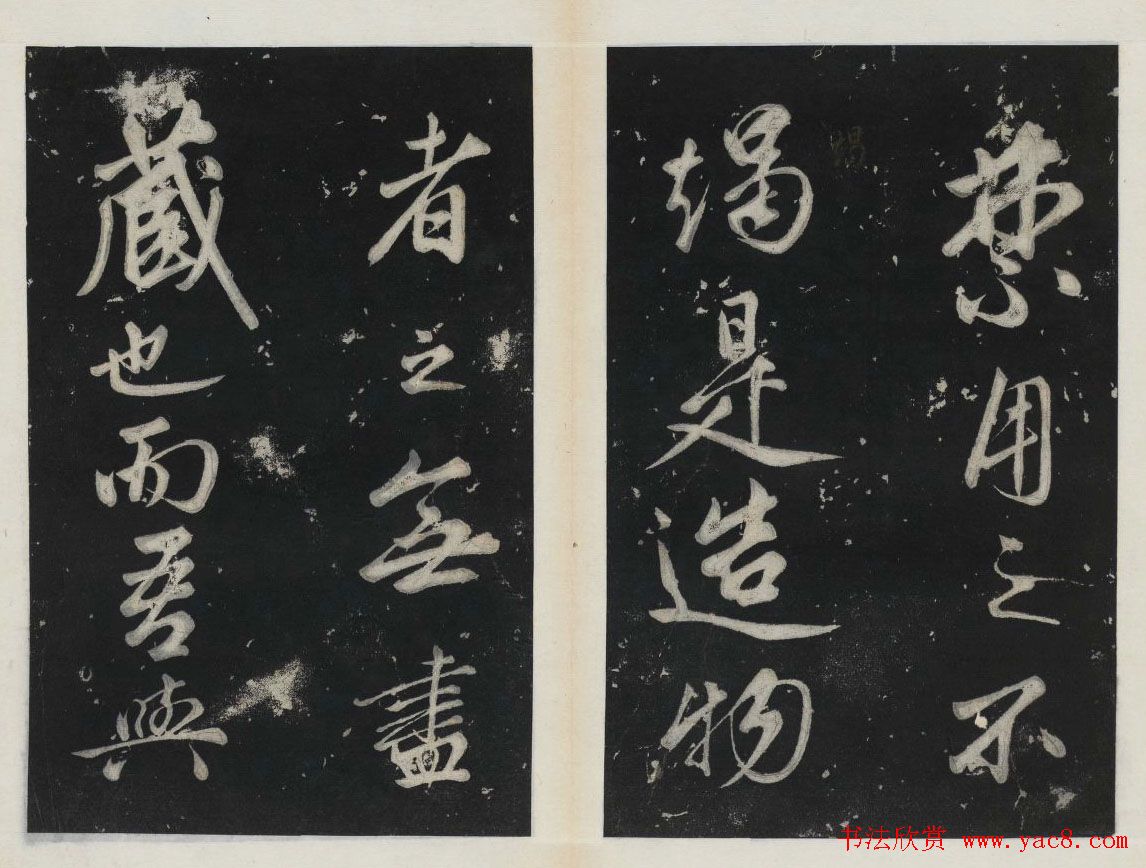 禁用之不
竭是造物
者之無盡
藏也而吾與
书法欣赏 www.yac8.com